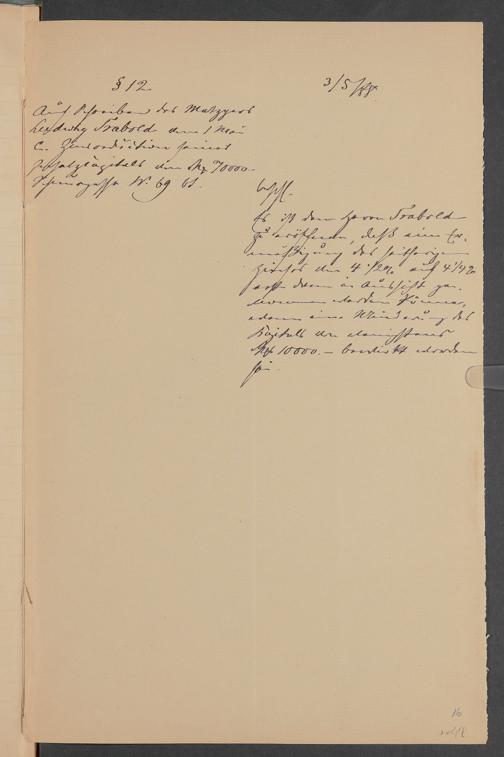 § 12.
3/5/88.
Auf Schreiben des Metzgers
Ludwig Trabold vom 1 Mai
c. Zinsreduction seines
Insatzkapitals von Mk 70000.-
N. 69 61.
bschl.
Es ist dem Herrn Trabold
zu eröffnen, daß eine Er-
mäßigung des seitherigen
Zinses von 4 1/2% auf 4 1/4 %
erst dann in Aussicht ge-
nommen werden könne,
wenn eine Minderung des
Kapitals von wenigstens
Mk 10000.- bewirkt worden
sei.